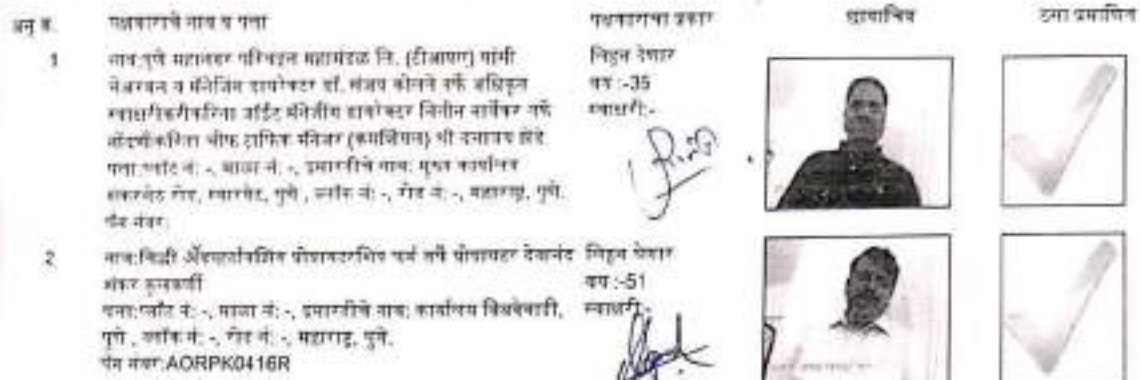 अनु क्र. पक्षकाराचे नाव व पत्ता पक्षकाराचा प्रकार छायाचित्र ठसा प्रमाणित
1 नाव:पुणे महानगर परिवहन महामंडळ लि. (टीआयए) यांमी लिहून देणार
चेअरमन व मॅनेजिंग डायरेक्टर डॉ. संजय कोलते तर्फे अधिकृत वय :-35
स्वाक्षरीकरीकरिता जॉईंट मॅनेजींग डायरेक्टर नितीन नार्वेकर तर्फे स्वाक्षरी:-
नोंदणीकरिता चीफ ट्राफिक मॅनेजर (कमर्शियल) श्री दत्तात्रय झेंडे
पत्ता:प्लॉट नं: -, माळा नं: -, इमारतीचे नाव: मुख्य कार्यालय
शंकरशेठ रोड, स्वारगेट, पुणे , ब्लॉक नं: -, रोड नं: -, महाराष्ट्र, पुणे.
पॅन नंबर:
2 नाव:सिद्धी अॅडव्हर्टायझिंग प्रोप्रायटरशिप फर्म तर्फे प्रोप्रायटर देवानंद लिहून घेणार
शंकर कुलकर्णी वय :-51
पत्ता:प्लॉट नं: -, माळा नं: -, इमारतीचे नाव: कार्यालय बिबवेवाडी, स्वाक्षरी:-
पुणे , ब्लॉक नं: -, रोड नं: -, महाराष्ट्र, पुणे.
पॅन नंबर:AORPK0416R